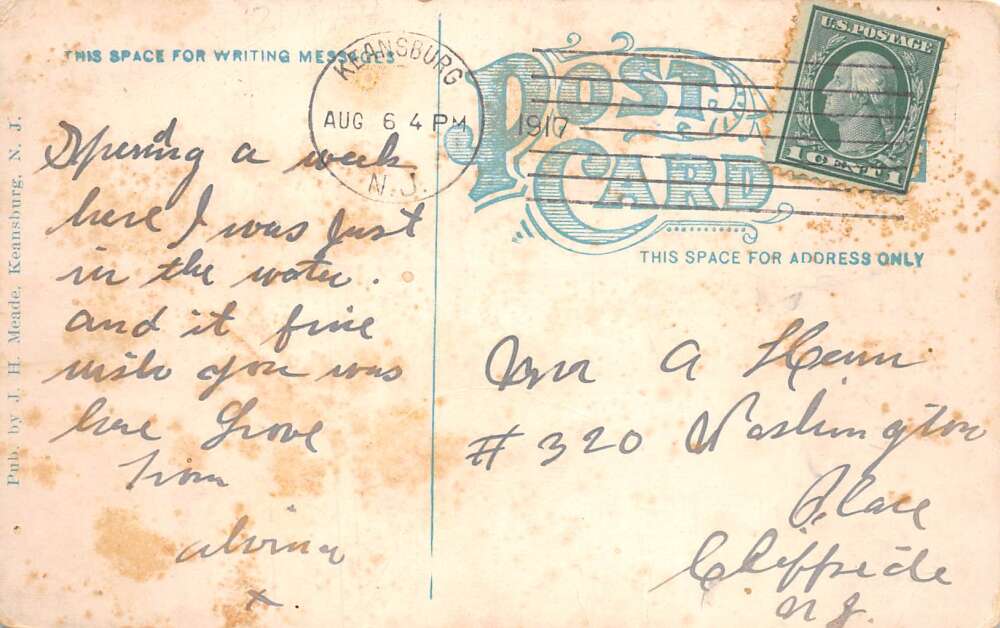 THIS SPACE FOR WRITING MESSAGES
KEANSBURG
AUG 6 4 PM
N.J.
1917
POST CARD
U.S. POSTAGE
1 CENT 1
THIS SPACE FOR ADDRESS ONLY
Pub. by J. H. Meade, Keansburg, N. J.
Spending a week
here I was just
in the water.
and it fine
wish you was
here Love
from
alvina
x
A
# 320 Washington
Place
Cliffside
N.J.